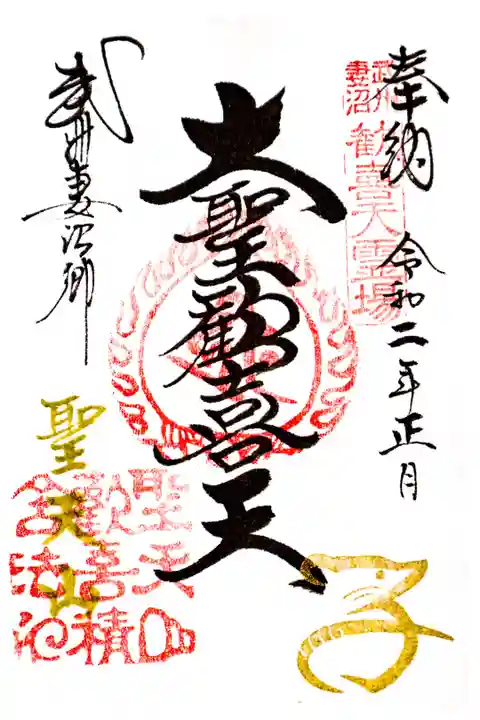 奉納 令和二年正月
武州
妻沼
歓喜天霊場
大聖歓喜天
武州妻沼郷
聖天山
聖天山
歓喜
子